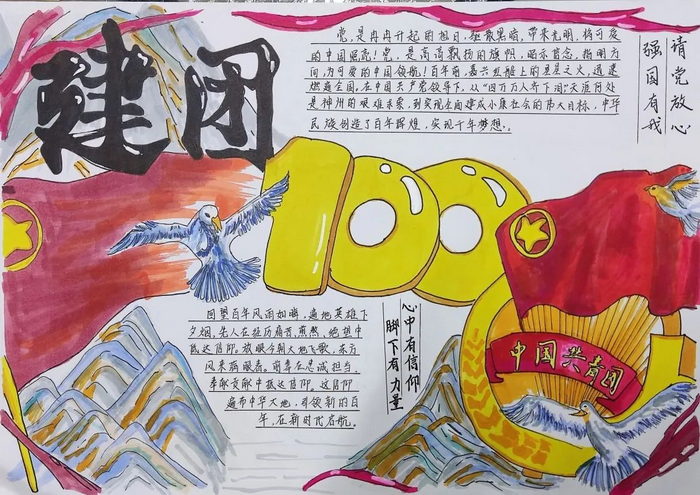 建团
100
党,是冉冉升起的旭日,驱散黑暗,带来光明,将可爱
的中国照亮!党,是高高飘扬的旗帜,昭示信念,指明方
向,为可爱的中国领航!百年前,嘉兴红船上的星星之火,迅速
燃遍全国,在中国共产党领导下,从"四万万人齐下泪"天涯何处
是神州的艰难求索,到实现全面建成小康社会的伟大目标,中华
民族创造了百年辉煌,实现千年梦想。
请党放心
强国有我
回望百年风雨如晦,遍地英雄下
夕烟,先人在经历痛苦、煎熬、绝望中
抵达信仰。放眼今朝大地飞歌,东方
风来满眼春,前辈在忠诚担当
奉献贡献中抵达信仰。这信仰
遍布中华大地,引领新的百
年,在新时代启航。
心中有信仰
脚下有力量
中国共青团